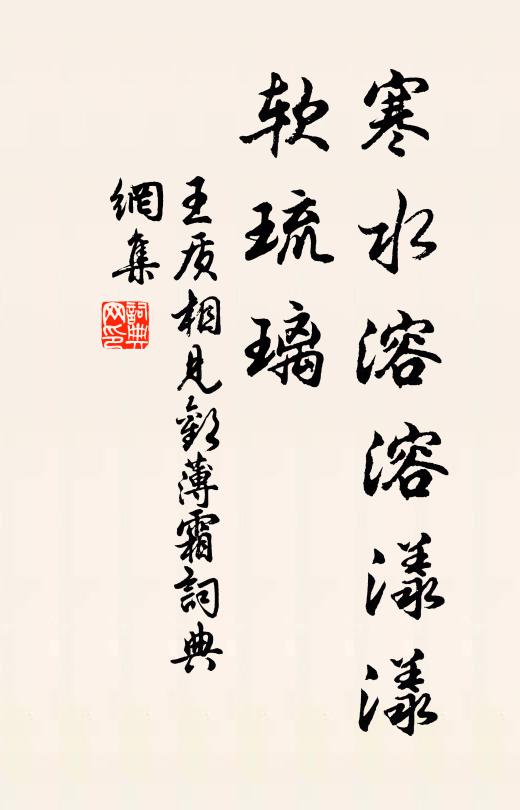 寒水溶溶漾漾
软琉璃
王质相见歡薄霜詞典
網集
詞典
网印